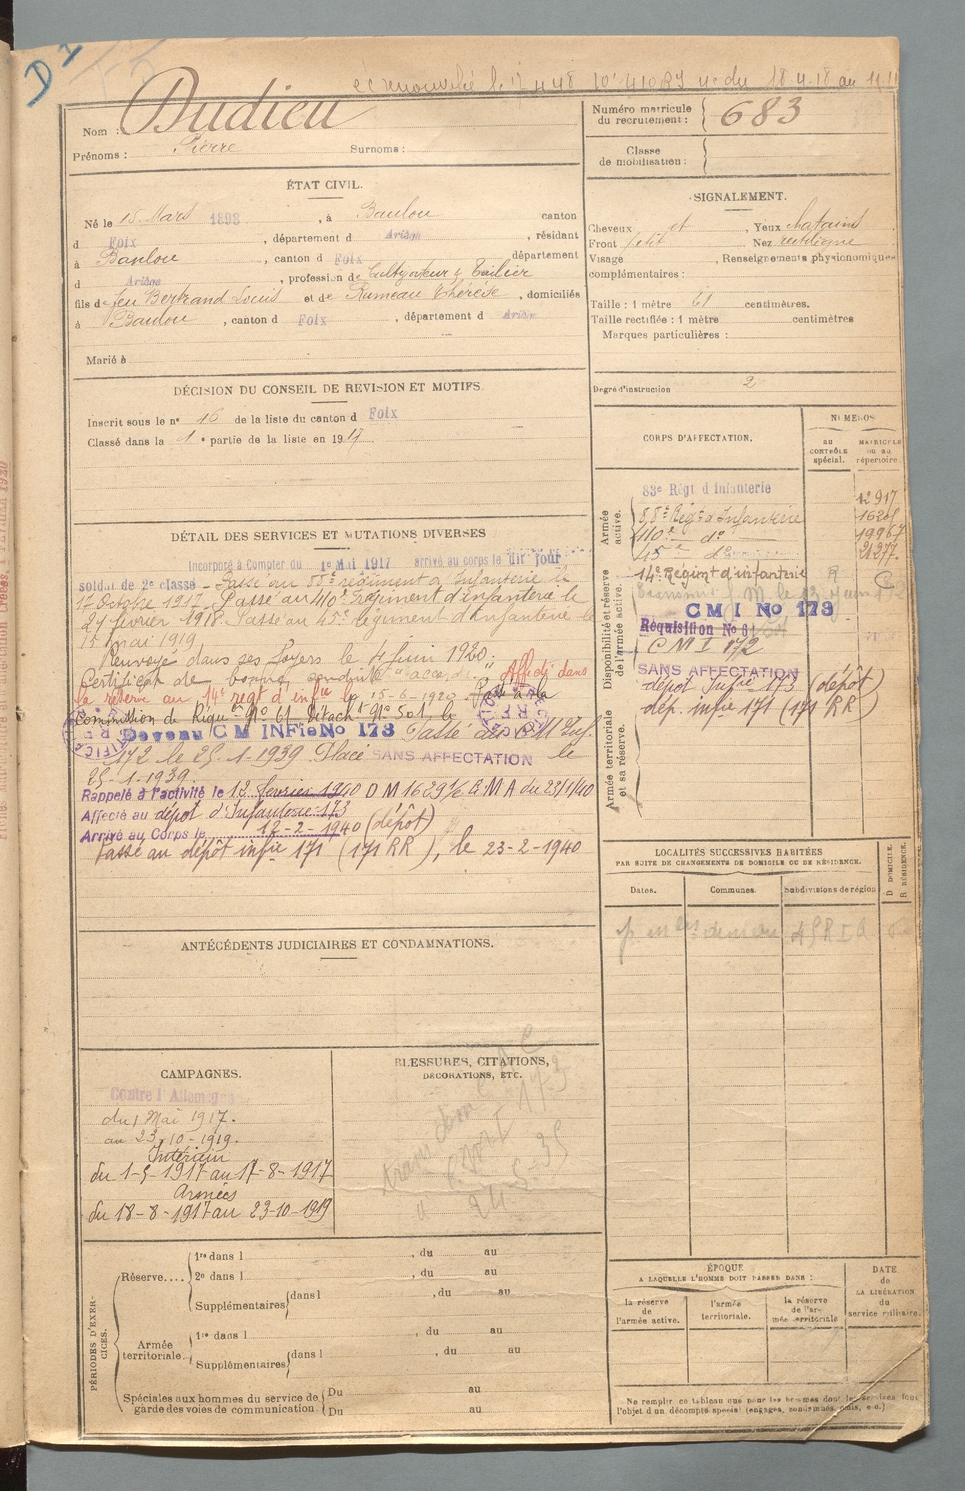 D 1
Nom : Dudieu
Prénoms : Pierre Surnoms :
Numéro matricule du recrutement : 683
Classe de mobilisation :
ÉTAT CIVIL.
Né le 15 Mars 1898, à Baulou canton
d Foix, département d Ariège, résidant
à Baulou, canton d Foix département
d Ariège, profession de Cultivateur & Tuilier
fils de feu Bertrand Louis et de Rumeau Thérèse, domiciliés
à Baulou, canton d Foix, département d Ariège
Marié à
SIGNALEMENT.
Cheveux et, Yeux chatains
Front petit Nez rectiligne
Visage, Renseignements physionomiques
complémentaires :
Taille : 1 mètre 61 centimètres.
Taille rectifiée : 1 mètre centimètres
Marques particulières :
Degré d'instruction 2
DÉCISION DU CONSEIL DE REVISION ET MOTIFS.
Inscrit sous le n° 16 de la liste du canton d Foix
Classé dans la 1e partie de la liste en 1917
DÉTAIL DES SERVICES ET MUTATIONS DIVERSES
Incorporé à Compter du 1e Mai 1917 arrivé au corps le dit jour
soldat de 2e classe – Passé au 88e régiment d'Infanterie le
17 Octobre 1917 – Passé au 410e régiment d'infanterie le
27 février 1918. Passé au 45e régiment d'Infanterie le
15 mai 1919
Renvoyé dans ses foyers le 4 Juin 1920.
Certificat de bonne conduite "accordé" Affecté dans
la réserve au 14e regt d'infie le 15-6-1920 Passé à la
Commission de Réqu on N° 61 Détacht N° 501, le
Devenu C M INFie No 173 Passé au C M Inf.
172 le 25-1-1939 Placé SANS AFFECTATION le
25-1-1939.
Rappelé à l'activité le 12 février 1940 D M 1629 1/2 E M A du 22/1/40
Affecté au dépot d'Infanterie 173
Arrivé au Corps le 12-2-1940 (dépôt)
Passé au dépôt infie 171 (171 RR), le 23-2-1940
CORPS D'AFFECTATION.
NUMÉROS
au CONTRÔLE spécial.
MATRICULE ou au répertoire.
Armée active.
83e Régt d Infanterie 12917
88e Régt d'Infanterie 16208
410e do 19967
45e do 21277
Disponibilité et réserve de l'armée active.
14e Régimt d'infanterie R
CMI No 173
Réquisition No 61
CMI 172
SANS AFFECTATION
dépot Infie 173 (dépôt)
dép. infie 171 (171 RR)
Armée territoriale et sa réserve.
LOCALITÉS SUCCESSIVES HABITÉES
PAR SUITE DE CHANGEMENTS DE DOMICILE OU DE RÉSIDENCE.
Dates. Communes. Subdivisions de région D DOMICILE. R RÉSIDENCE.
ANTÉCÉDENTS JUDICIAIRES ET CONDAMNATIONS.
CAMPAGNES.
Contre l'Allemagne
du 1 Mai 1917.
au 23-10-1919.
Intérieur
du 1-5-1917 au 17-8-1917
Armées
du 18-8-1917 au 23-10-1919
BLESSURES, CITATIONS,
DÉCORATIONS, ETC.
PÉRIODES D'EXERCICES.
Réserve....
1re dans l, du au
2e dans l, du au
Supplémentaires dans l, du au
Armée territoriale.
1re dans l, du au
Supplémentaires dans l, du au
Spéciales aux hommes du service de garde des voies de communication.
Du au
Du au
ÉPOQUE
A LAQUELLE L'HOMME DOIT PASSER DANS :
la réserve de l'armée active.
l'armée territoriale.
la réserve de l'armée territoriale
DATE de LA LIBÉRATION du service militaire.
Ne remplir ce tableau que pour les hommes dont les services font
l'objet d'un décompte spécial (engagés, condamnés, omis, etc.)